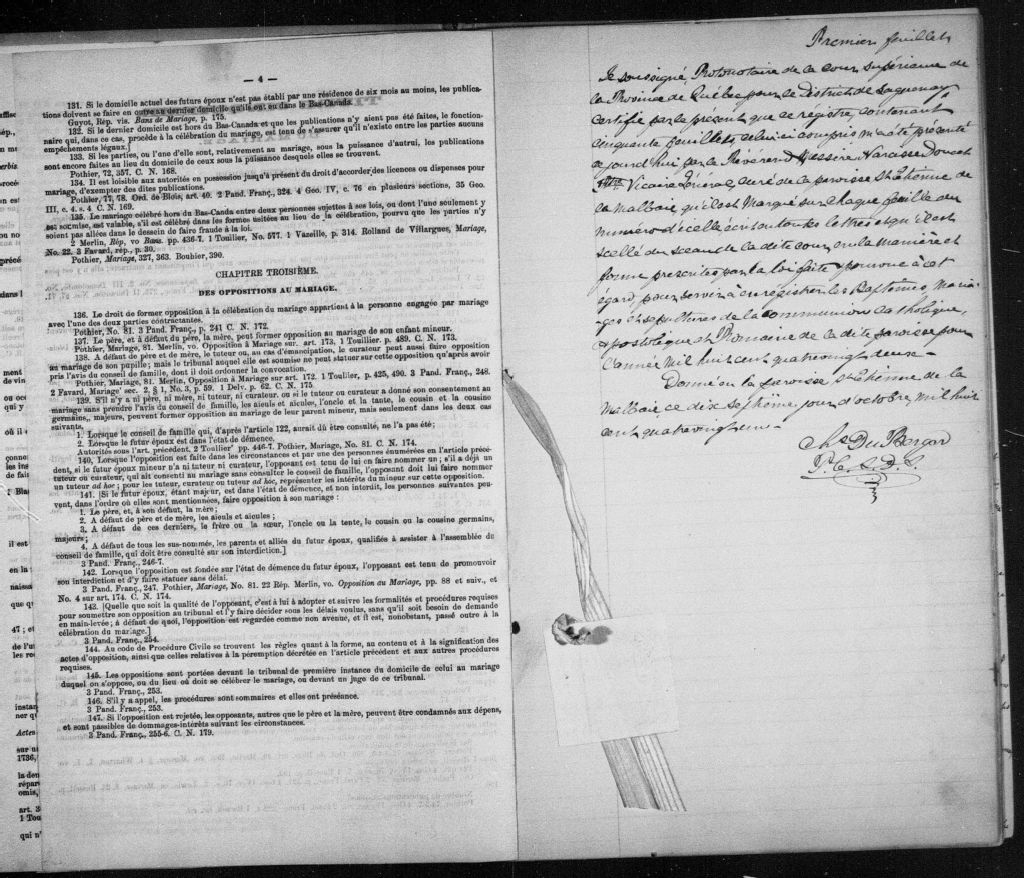 — 4 —
131. Si le domicile actuel des futurs époux n'est pas établi par une résidence de six mois au moins, les publica-
tions doivent se faire en outre au dernier domicile qu'ils ont eu dans le Bas-Canada.
Guyot, Rép. vis. Bans de Mariage, p. 175.
132. Si le dernier domicile est hors du Bas-Canada et que les publications n'y aient pas été faites, le fonction-
naire qui, dans ce cas, procède à la célébration du mariage, est tenu de s'assurer qu'il n'existe entre les parties aucuns
empêchements légaux.]
133. Si les parties, ou l'une d'elle sont, relativement au mariage, sous la puissance d'autrui, les publications
sont encore faites au lieu du domicile de ceux sous la puissance desquels elles se trouvent.
Pothier, 72, 357. C. N. 168.
134. Il est loisible aux autorités en possession jusqu'à présent du droit d'accorder des licences ou dispenses pour
mariage, d'exempter des dites publications.
Pothier, 77, 78. Ord. de Blois, art. 40. 2 Pand. Franç., 324. 4 Geo. IV, c. 76 en plusieurs sections, 35 Geo.
III, c. 4. s. 4 C. N. 169.
135. Le mariage célébré hors du Bas-Canda entre deux personnes sujettes à ses lois, ou dont l'une seulement y
est soumise, est valable, s'il est célébré dans les formes usitées au lieu de la célébration, pourvu que les parties n'y
soient pas allées dans le dessein de faire fraude à la loi.
2 Merlin, Rép, vo Bans. pp. 436-7. 1 Toullier, No. 577. 1 Vazeille, p. 314. Rolland de Villargues, Mariage,
No. 22. 3 Favard, rép., p. 30.
Pothier, Mariage, 327, 363. Bouhier, 390.
CHAPITRE TROISIÈME.
DES OPPOSITIONS AU MARIAGE.
136. Le droit de former opposition à la célébration du mariage appartient à la personne engagée par mariage
avec l'une des deux parties contractantes.
Pothier, No. 81. 3 Pand. Franç., p. 241 C. N. 172.
137. Le père, et à défaut du père, la mère, peut former opposition au mariage de son enfant mineur.
Pothier, Mariage, 81. Merlin, vo. Opposition à Mariage sur. art. 173, 1 Touillier. p. 489. C. N. 173.
138. A défaut de père et de mère, le tuteur ou, au cas d'émancipation, le curateur peut aussi faire opposition
au mariage de son pupille; mais le tribunal auquel elle est soumise ne peut statuer sur cette opposition qu'après avoir
pris l'avis du conseil de famille, dont il doit ordonner la convocation.
Pothier, Mariage, 81. Merlin, Opposition à Mariage sur art. 172. 1 Toulier, p. 425, 490. 3 Pand. Franç., 248.
2 Favard, Mariage' sec. 2. § 1, No. 3, p. 59. 1 Delv. p. 62. C. N. 175
139. S'il n'y a ni père, ni mère, ni tuteur, ni curateur. ou si le tuteur ou curateur a donné son consentement au
mariage sans prendre l'avis du conseil de famille, les aïeuls et aïeules, l'oncle et la tante, le cousin et la cousine
germains, majeurs, peuvent former opposition au mariage de leur parent mineur, mais seulement dans les deux cas
suivants,
1. Lorsque le conseil de famille qui, d'après l'article 122, aurait dû être consulté, ne l'a pas été;
2. Lorsque le futur époux est dans l'état de démence.
Autorités sous l'art. précédent. 2 Toullier' pp. 446-7. Pothier, Mariage, No. 81. C. N. 174.
140. Lorsque l'opposition est faite dans les circonstances et par une des personnes énumérées en l'article précé-
dent, si le futur époux mineur n'a ni tuteur ni curateur, l'opposant est tenu de lui en faire nommer un; s'il a déjà un
tuteur ou curateur, qui ait consenti au mariage sans consulter le conseil de famille, l'opposant doit lui faire nommer
un tuteur ad hoc; pour les tuteur, curateur ou tuteur ad hoc, représenter les intérêts du mineur sur cette opposition.
141. Si le futur époux, étant majeur, est dans l'état de démence, et non interdit, les personnes suivantes peu-
vent, dans l'ordre où elles sont mentionnées, faire opposition à son mariage:
1. Le père, et, à son défaut, la mère;
2. A défaut de père et de mère, les aïeuls et aïeules;
3. A défaut de ces derniers, le frère ou la sœur, l'oncle ou la tente, le cousin ou la cousine germains,
majeurs;
4. A défaut de tous les sus-nommés, les parents et alliés du futur époux, qualifiés à assister à l'assemblée du
conseil de famille, qui doit être consulté sur son interdiction.]
3 Pand. Franç., 246-7.
142. Lorsque l'opposition est fondée sur l'état de démence du futur époux, l'opposant est tenu de promouvoir
son interdiction et d'y faire statuer sans délai.
3 Pand. Franç., 247. Pothier, Mariage, No. 81. 22 Rép. Merlin, vo. Opposition au Mariage, pp. 88 et suiv., et
No. 4 sur art. 174. C. N. 174.
143. [Quelque que soit la qualité de l'opposant, c'est à lui à adopter et suivre les formalités et procédures requises
pour soumettre son opposition au tribunal et l'y faire décider sous les délais voulus, sans qu'il soit besoin de demande
en main-levée; à défaut de quoi, l'opposition est regardée comme non avenue, et il est, nonobstant, passé outre à la
célébration du mariage.]
3 Pand. Franç., 254.
144. Au code de Procédure Civile se trouvent les règles quant à la forme, au contenu et à la signification des
actes d'opposition, ainsi que celles relatives à la péremption décrétée en l'article précédent et aux autres procédures
requises.
145. Les oppositions sont portées devant le tribunal de première instance du domicile de celui au mariage
duquel on s'oppose, ou du lieu où doit se célébrer le mariage, ou devant un juge de ce tribunal.
3 Pand. Franç., 253.
146. S'il y a appel, les procédures sont sommaires et elles ont préséance.
3 Pand. Franç., 253.
147. Si l'opposition est rejetée, les opposants, autres que le père et la mère, peuvent être condamnés aux dépens,
et sont passibles de dommages-intérêts suivant les circonstances.
3 Pand. Franç., 255-6. C. N. 179.
Premier feuillet
Je soussigné Protonotaire de la cour supérieure de
la Province de Québec pour le District de Saguenay,
certifie par le présent que ce régistre, contenant
cinquante feuillets, celui-ci compris m'a été présenté
ce jourd'hui par le Révérend Messire Narcisse Doucet
Ptre Vicaire Général, curé de la paroisse St Etienne de
la Malbaie qu'il est Marqué sur chaque feuille du
numéro d'icelle écrit en toutes lettres et qu'il est
scellé du sceau de la dite cour en la manière et
forme prescrites par la loi faite & pourvue à cet
égard, pour servir à enrégistrer les Baptêmes Maria-
ges et sépultures de la communion Catholique,
apostolique et Romaine de la dite paroisse pour
l'année Mil huit cent quatrevingt deux —
Donné en la paroisse St Etienne de la
Malbaie ce dix septième jour d'octobre mil huit
cent quatrevingt un —
Chs Du Berger
P. C. S. D. S.